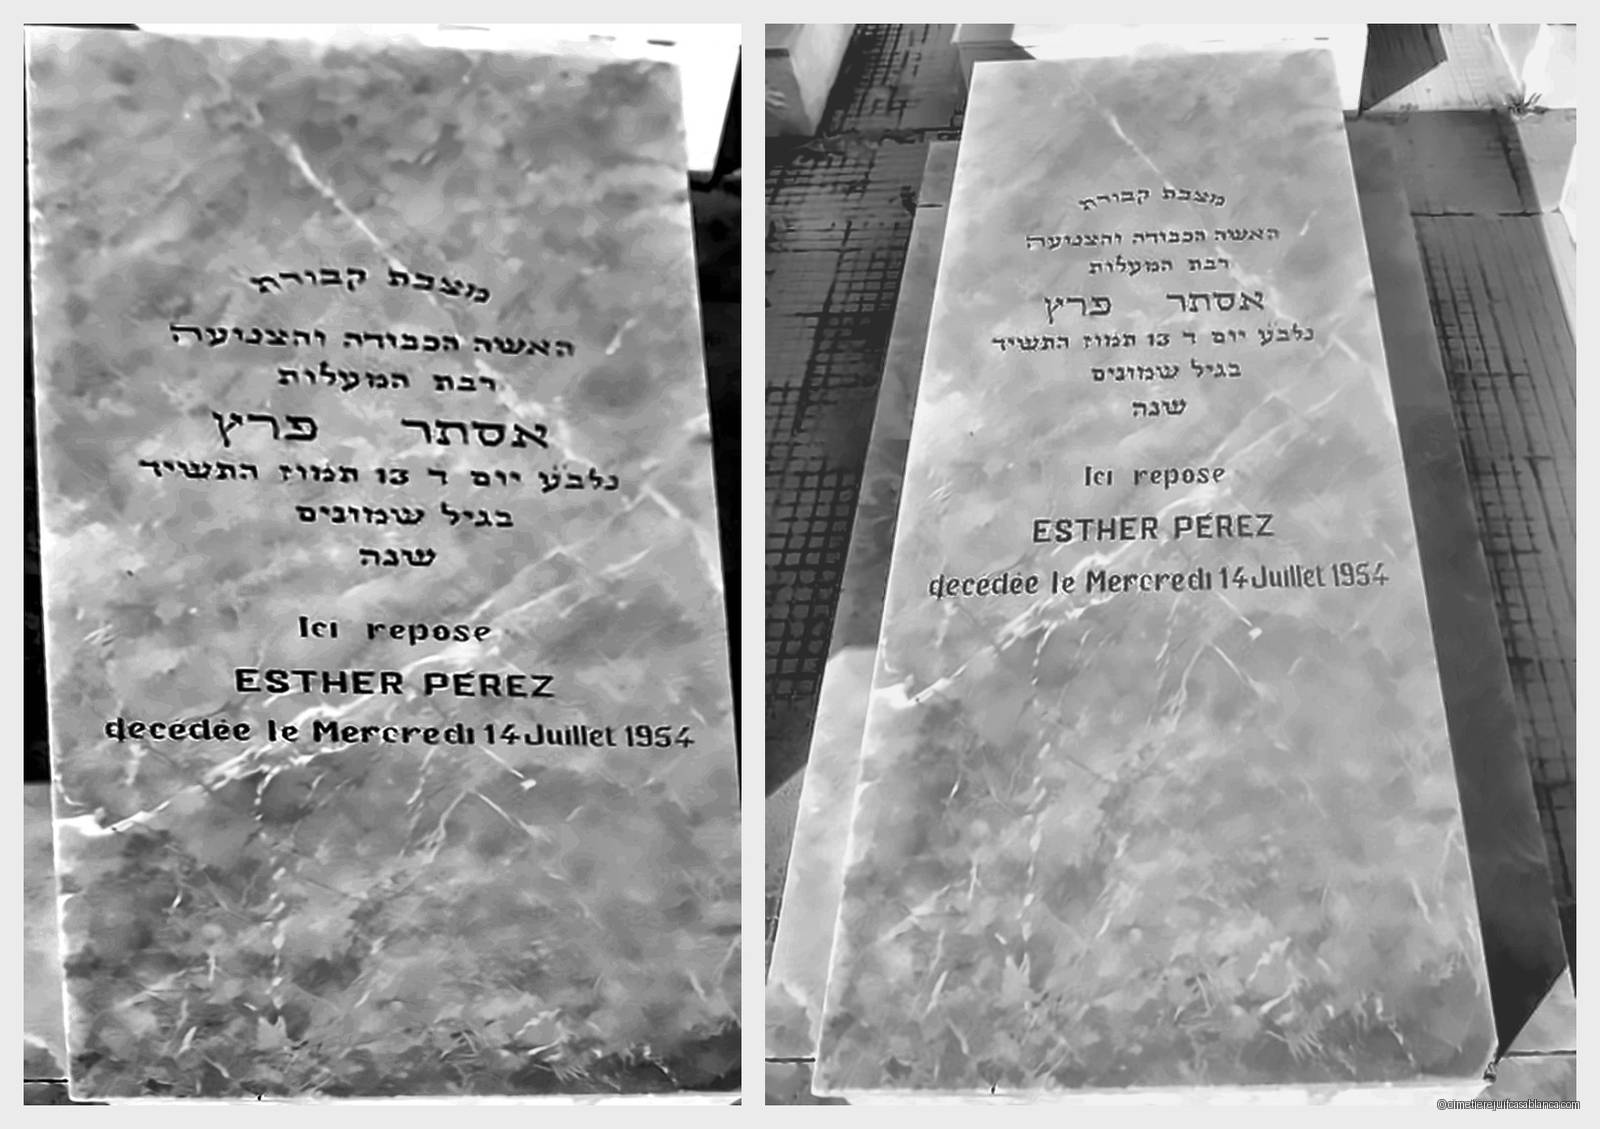 מצבת קבורת
האשה הכבודה והצנועה
רבת המעלות
אסתר פרץ
נלבע יום ד 13 תמוז התשיד
בגיל שמונים
שנה
Ici repose
ESTHER PÉREZ
décédée le Mercredi 14 Juillet 1954
מצבת קבורת
האשה הכבודה והצנועה
רבת המעלות
אסתר פרץ
נלבע יום ד 13 תמוז התשיד
בגיל שמונים
שנה
Ici repose
ESTHER PÉREZ
décédée le Mercredi 14 Juillet 1954
©cimetierejuifcasablanca.com